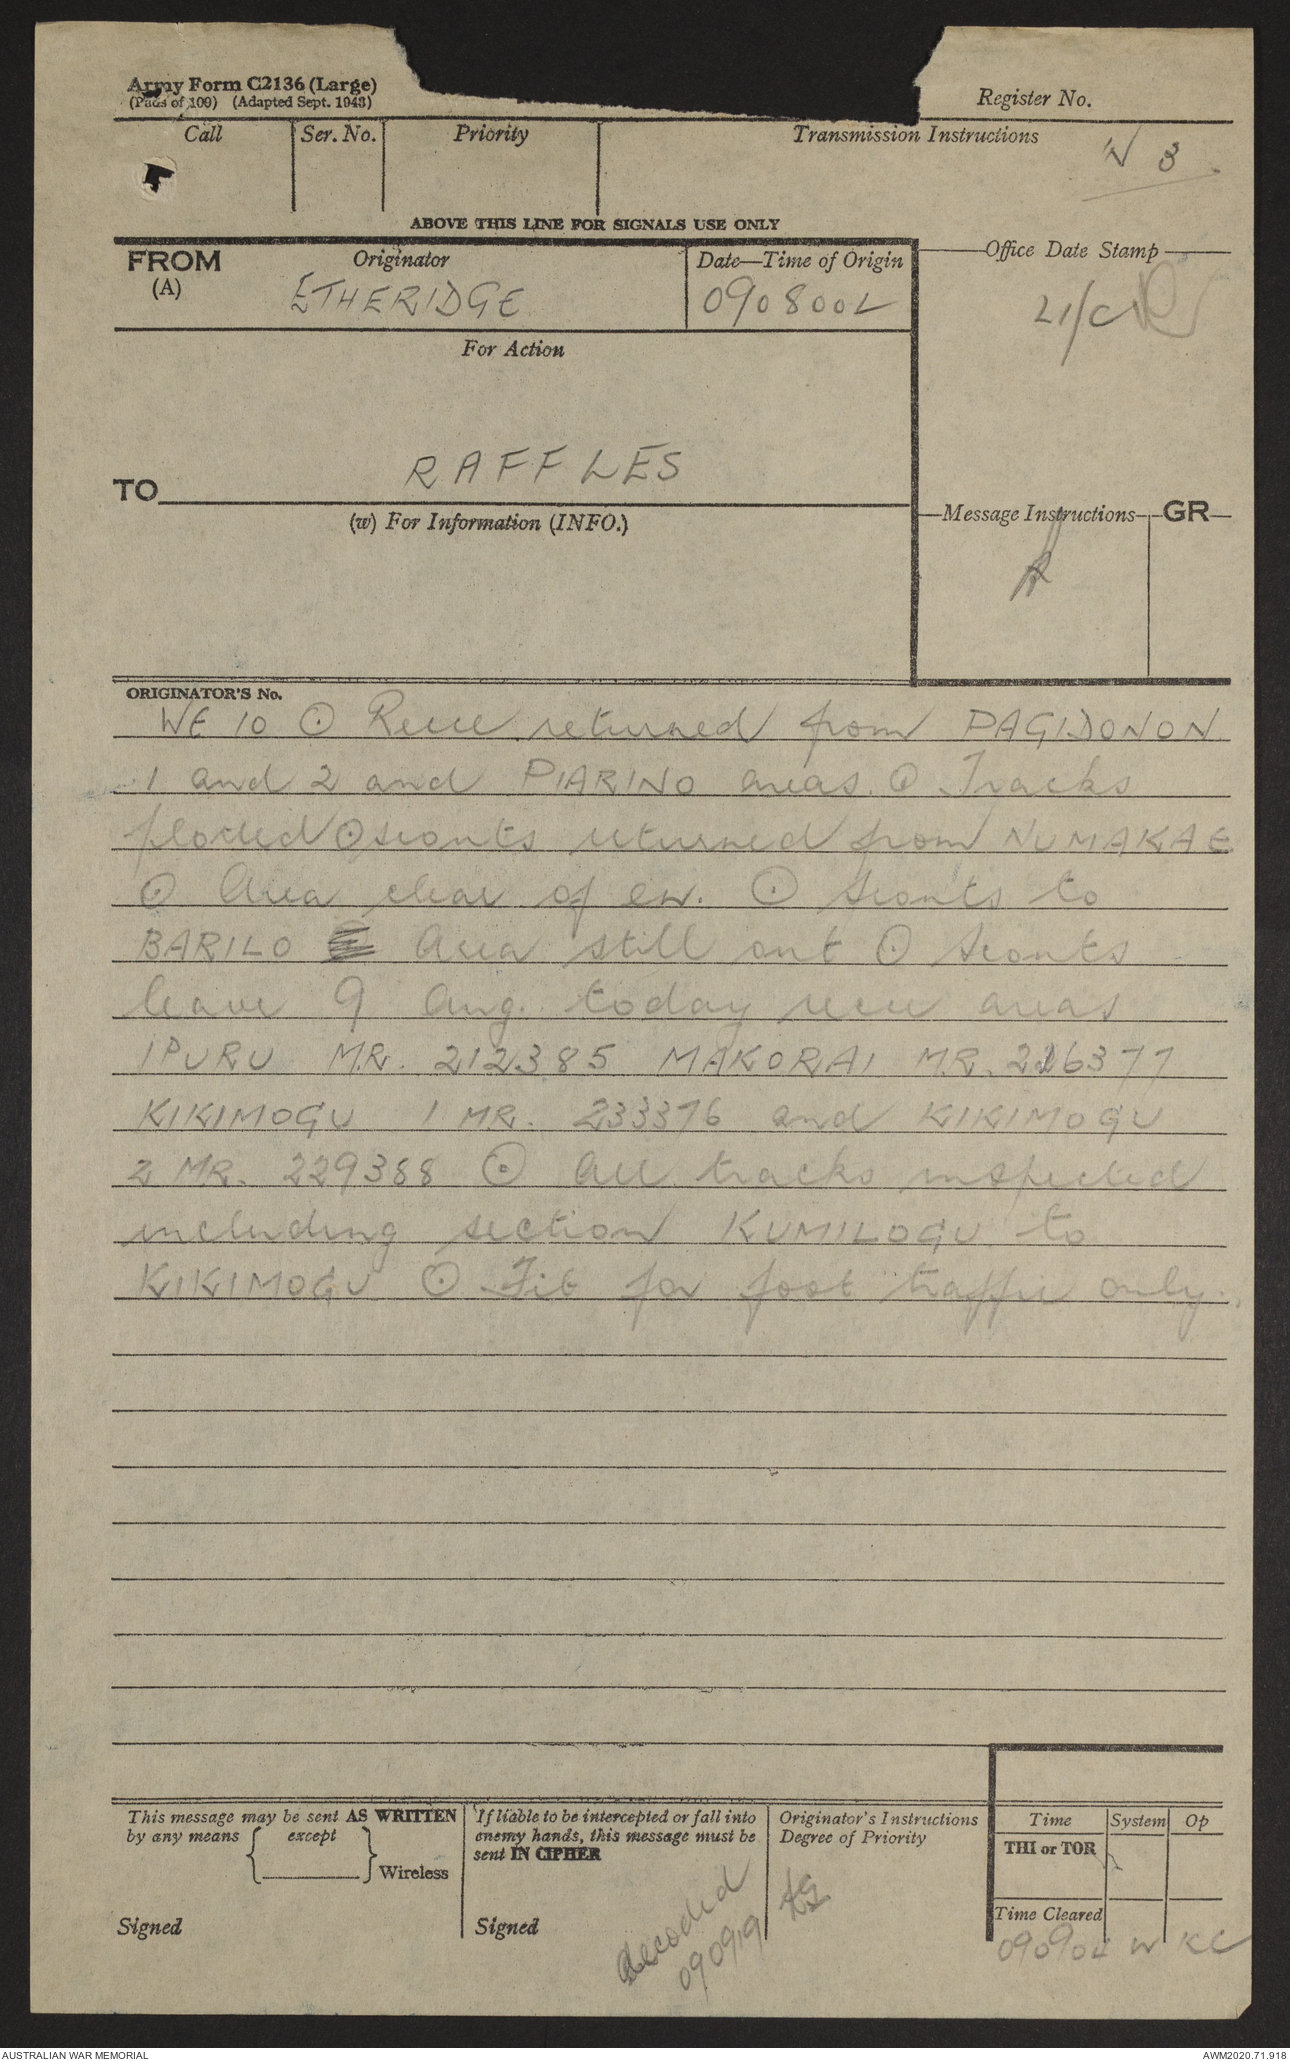 Army Form C2136 (Large)
(Pads of 100) (Adapted Sept. 1943)
Register No.
Call Ser. No. Priority Transmission Instructions
W 3
ABOVE THIS LINE FOR SIGNALS USE ONLY
FROM Originator Date—Time of Origin Office Date Stamp
(A) ETHERIDGE 090800L
For Action
TO RAFFLES
(w) For Information (INFO.) Message Instructions GR
ORIGINATOR'S No.
WE 10 ⊙ Recce returned from PAGIDONON
1 and 2 and PIARINO areas. ⊙ Tracks
ploded ⊙ scouts returned from NUMAKAE
⊙ Area clear of en. ⊙ Scouts to
BARILO Area still out ⊙ Scouts
leave 9 Aug. today recce areas
IPURU MR. 212385 MAKORAI MR. 226377
KIKIMOGU 1 MR. 233376 and KIKIMOGU
2 MR. 229388 ⊙ All tracks inspected
including section KUMILOGU to
KIKIMOGU ⊙ Fit for foot traffic only.
This message may be sent AS WRITTEN
by any means { except } Wireless
Signed
If liable to be intercepted or fall into
enemy hands, this message must be
sent IN CIPHER
Signed
decoded
090919
Originator's Instructions
Degree of Priority
Time System Op
THI or TOR
Time Cleared
090904 W KC
AUSTRALIAN WAR MEMORIAL AWM2020.71.918